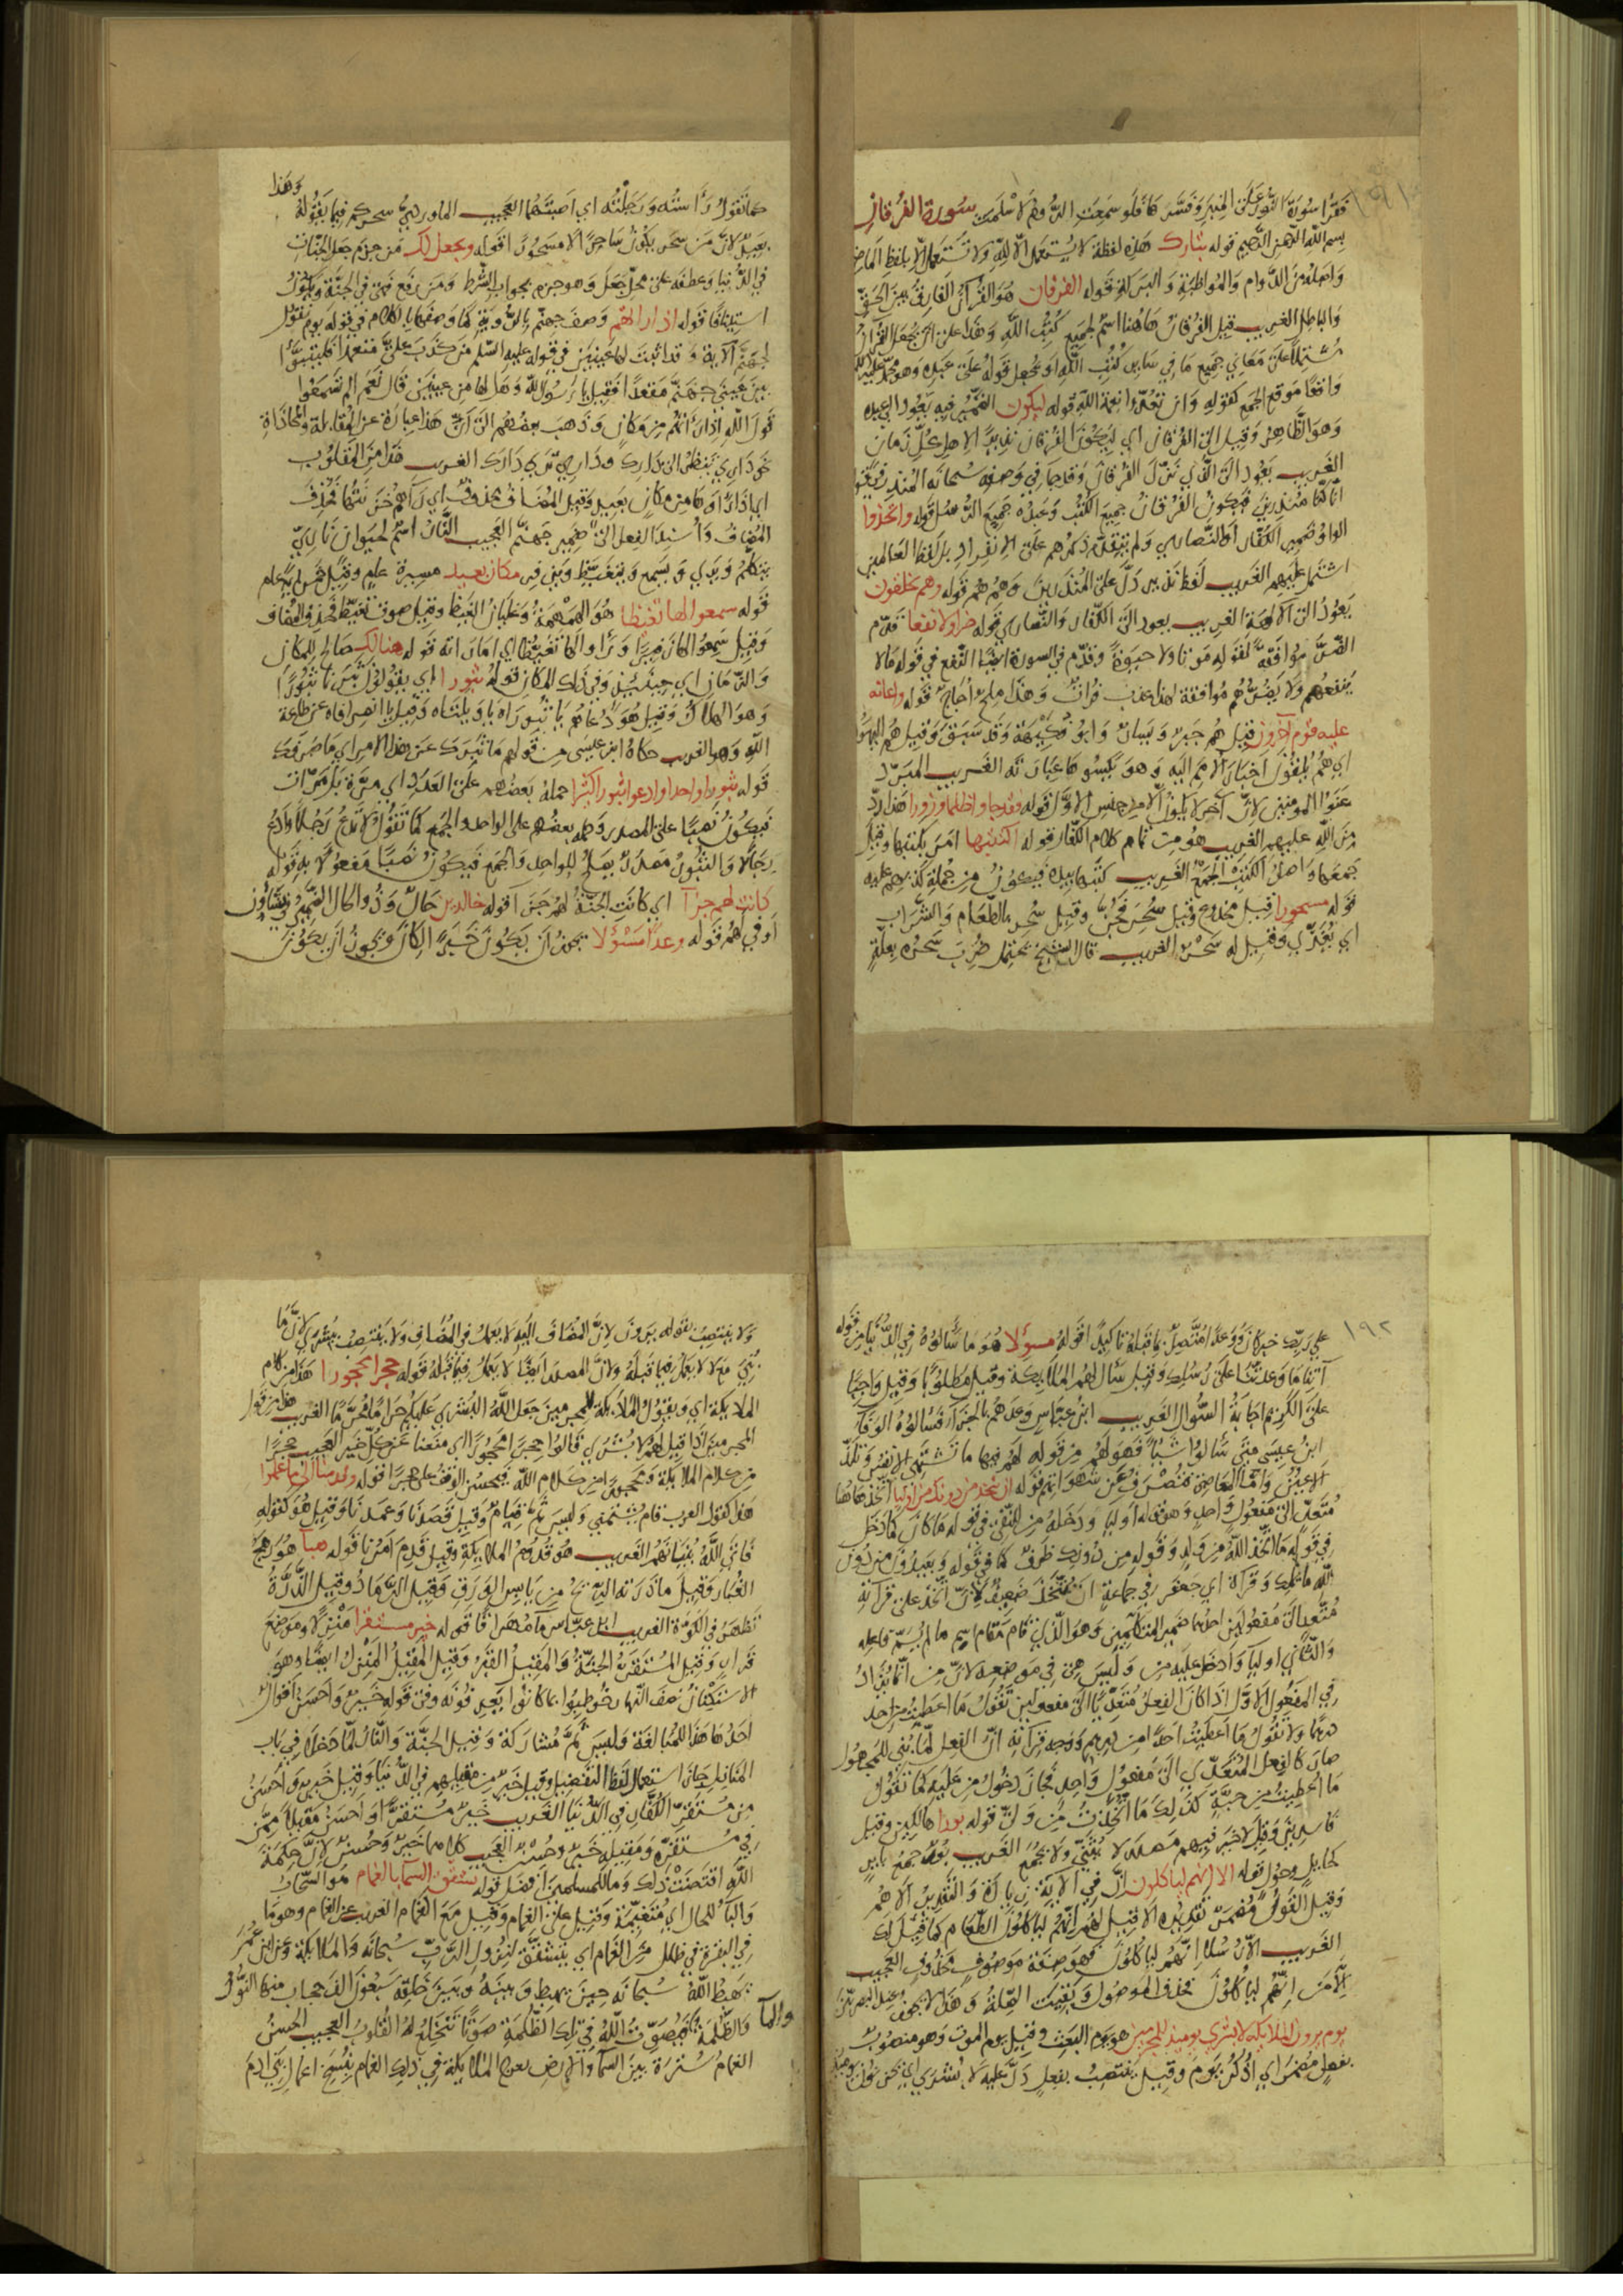 ١٩١
فقرأ سورة النور على المنبر وفسرها فلو سمعت الروم لاسلمت سورة الفرقان
بسم الله الرحمن الرحيم قوله تبارك هذه لفظة لا يستعمل الا لله ولا تستعمل الا بلفظ الماضي
واصله من الدوام والمواظبة والبركة قوله الفرقان هو القرآن الفارق بين الحق
والباطل الغريب قيل الفرقان هاهنا اسم لجميع كتب الله وهذا على ان يجعل القرآن
مشتملا على معاني جميع ما في سائر كتب الله او يجعل قوله على عبده وهو محمد عليه السلام
واقعا موقع الجمع كقوله وان تعدوا نعمة الله قوله ليكون الضمير فيه يعود الى عبده
وهو الظاهر وقيل الى الفرقان اي ليكون الفرقان نذيرا لاهل كل زمان
الغريب يعود الى الذي نزل الفرقان وقد جا في وصفه سبحانه المنذر في قوله
انا كنا منذرين فيكون الفرقان جميع الكتب وعبده جميع الرسل قوله واتخذوا
الواو ضمير الكفار والنصاري ولم يتقدم ذكرهم على الانفراد بل لفظ العالمين
اشتمل عليهم الغريب لفظ نذير دل على المنذرين وهم هم قوله وهم يخلقون
يعود الى الآلهة الغريب يعود الى الكفار والنصاري قوله ضرا ولا نفعا قدم
الضر موافقة لقوله موتا ولا حيوة وقدم في السورة ايضا النفع في قوله ما لا
ينفعهم ولا يضرهم موافقة لهذا عذب فرات وهذا ملح اجاج قوله واعانه
عليه قوم آخرون قيل هم جبر ويسار وابو فكيهة وقد سبق وقيل هم اليهود
اي هم يلقون اخبار الامم اليه وهو يكسوها عبارته الغريب المبرد
عنوا المومنين لان آخر لا يكون الا من جنس الاول قوله فقد جاوا ظلما وزورا هذا رد
من الله عليهم الغريب هو من تمام كلام الكفار قوله اكتتبها امر بكتبها وقيل
جمعها واصل الكتب الجمع الغريب كتبها بيده فيكون من جملة كذبهم عليه
قوله مسحورا قيل مخدوع وقيل سحر فجن وقيل سحر بالطعام والشراب
اي يغذي وقيل له سحر الغريب قال الشيخ يحتمل ضرب سحره بعلة
وهذا
كما تقول رأسته ورجلته اي اصبتهما العجيب الماوردي سحركم فيما يقوله
بعيد لان من سحر يكون ساحرا لا مسحورا قوله ويجعل لك من جزم جعل الجنات
في الدنيا وعطفه على محل جعل وهو جزم بجواب الشرط ومن رفع فهي في الجنة ويكون
استينافا قوله اذا راتهم وصف جهنم بالروية كما وصفها بالكلام في قوله يوم نقول
لجهنم الآية وقد اثبت لها عينين في قوله عليه السلم من كذب علي متعمدا فليتبوأ
بين عيني جهنم مقعدا فقيل يا رسول الله وهل لها من عينين قال نعم الم تسمعوا
قول الله اذا راتهم من مكان وذهب بعضهم الى ان هذا عبارة عن المقابلة والمحاذاة
نحو داري ينظر الى دارك وداري تري دارك الغريب هذا من المقلوب
اي اذا راوها من مكان بعيد وقيل المضاف محذوف اي رآهم خزنتها فحذف
المضاف واسند الفعل الى ضمير جهنم العجيب النار اسم لحيوان ناري
يتكلم ويري ويسمع ويتغيظ ويزفر مكان بعيد مسيرة عام وقيل خمس مائة عام
قوله سمعوا لها تغيظا هو الهمهمة وغليان الغيظ وقيل صوت تغيظ فحذف المضاف
وقيل سمعوا لها زفيرا وراوا لها تغيظا اي امارته قوله هنالك صالح للمكان
والزمان اي حينئذ وفي ذلك المكان قوله ثبورا اي يقولون ثبرنا ثبورا
وهو الهلاك وقيل هو دعاهم يا ثبوراه يا ويلتاه وقيل يا انصرافاه عن طاعة
الله وهو الغريب حكاه ابن عيسى من قولهم ما ثبرك عن هذا الامر اي ما صرفك
قوله ثبورا واحدا وادعوا ثبورا كثيرا حمله بعضهم على العدد اي مرة بل مرات
فيكون نصبا على المصدر وحمله بعضهم على الواحد والجمع كما تقول لا تدع رجلا وادع
رجالا والثبور مصدر يصلح للواحد والجمع فيكون نصبا مفعولا به قوله
كانت لهم جزآ اي كانت الجنة لهم جزا قوله خالدين حال وذو الحال الضمير في يشاؤن
او في لهم قوله وعدا مسؤلا يجوز ان يكون خبر كان ويجوز ان يكون
١٩٢
على ربك خبر كان ووعدا منتصب بما قبله تاكيدا قوله مسؤلا هو ما سألوه في الدنيا من قوله
آتنا ما وعدتنا على رسلك وقيل سأل لهم الملائكة وقيل مطلوبا وقيل واجبا
على الكريم اجابة السوال الغريب ابن عباس وعدهم بالجزا فسألوه الوفا
ابن عيسى متى سألوا شيا فهو لهم من قوله لهم فيها ما تشتهي الانفس وتلذ
الاعين واما المعاصي فتصرف عن شهواتهم قوله ان نتخذ من دونك من اوليا اتخذ هاهنا
متعد الى مفعول واحد وهو قوله اوليا ودخله من للنفي في قوله ما كان كما دخل
في قوله ما اتخذ الله من ولد وقوله من دونك ظرف كما في قوله ويعبدون من دون
الله ما يملك وقراة ابي جعفر في جماعة ان نُتخذ ضعيف لان اتخذ على قرآته
متعد الى مفعولين احدهما ضمير المتكلمين وهو الذي قام مقام اسم ما لم يسم فاعله
والثاني اوليا وادخل عليه من وليس هي في موضعه لان من انما يزاد
في المفعول الاول اذا كان الفعل متعديا الى مفعولين تقول ما اعطيت من احد
درهما ولا تقول ما اعطيت احدا من درهم ووجه قرآته ان الفعل لما بني للمجهول
صار كالفعل المتعدي الى مفعول واحد فجاز دخول من عليه كما تقول
ما اعطيت من حبة كذلك ما اتخذت من ولي قوله بورا هالكين وقيل
فاسدين وقيل لا خير فيهم مصدر لا يثنى ولا يجمع الغريب بور جمع باير
كحايل وحول قوله الا انهم لياكلون ان في الآية زيادة والتقدير الا هم
وقيل القول مضمر تقديره الا قيل لهم انهم لياكلون الطعام كما قيل لك
الغريب الا رسلا انهم لياكلون فهو صفة موصوف محذوف العجيب
الا من انهم لياكلون فحذف الموصول وبقيت الصلة وهذا لا يجوز عند البصريين
يوم يرون الملائكة لا بشري يوميذ للمجرمين هو يوم البعث وقيل يوم الموت وهو منصوب
بفعل مضمر اي اذكر يوم وقيل ينتصب بفعل دل عليه لا بشري اي يحزنون يوميذ
ولا ينتصب بقوله يرون لان المضاف اليه لا يعمل في المضاف ولا ينتصب ببشري لان ما
بُني مع لا لا يعمل فيما قبله ولان المصدر ايضا لا يعمل فيما قبله قوله حجرا محجورا هذا من كلام
الملايكة اي ويقول الملايكة للمجرمين جعل الله البشري عليكم حراما محرما الغريب هذا من قول
المجرمين اذا قيل لهم لا بشري قالوا حجرا محجورا اي منعنا عن كل خير العجيب حجرا
من كلام الملايكة ومحجورا من كلام الله فيحسن الوقف على حجرا قوله وقدمنا الى ما عملوا
هذا كقول العرب قام يشتمني وليس ثم قيام وقيل قصدنا وعمدنا وقيل هو كقوله
فاتي الله بنيانهم الغريب هو قدوم الملايكة وقيل قدم امرنا قوله هبآ هو رهج
الغبار وقيل ما ذرته الريح من يابس الورق وقيل الرماد وقيل الذرة
تظهر في الكوة الغريب ابن عباس مآ مهراقا قوله خير مستقرا منزلا وموضع
قرار وقيل المستقر الجنة والمقيل القبر وقيل المقيل المنزل ايضا وهو
الاستكنان نصف النهار خوطبوا بما كانوا يعرفونه وفي قوله خير واحسن اقوال
احدها هذا للمبالغة وليس ثم مشاركة وقيل الجنة والنار لما دخلا في باب
المنازل جاز استعمال لفظ التفضيل وقيل خير من مقيلهم في الدنيا وقيل خير واحسن
من مستقر الكفار في الدنيا الغريب خير مستقرا واحسن مقيلا ممن
في مستقره ومقيله خير وحسن العجيب كلاهما خير وحسن لان حكمة
الله اقتضت ذلك وما للمسلمين افضل قوله تشقق السمآ بالغمام هو السحاب
والبآ للحال اي متغيمة وقيل على الغمام وقيل مع الغمام الغريب عن الغمام وهو ما
في البقرة في ظلل من الغمام اي يتشقق لنزول الرب سبحانه والملايكة وعن ابن عمر
يهبط الله سبحانه حين يهبط وبينه وبين خلقه سبعون الف حجاب منها النور
والظلمة والمآ فيصوت الله في تلك الظلمة صوتا تنخلع له القلوب العجيب الحسن
الغمام سترة بين السمآ والارض يعرج الملايكة في ذلك الغمام بنسخ اعمال بني ادم